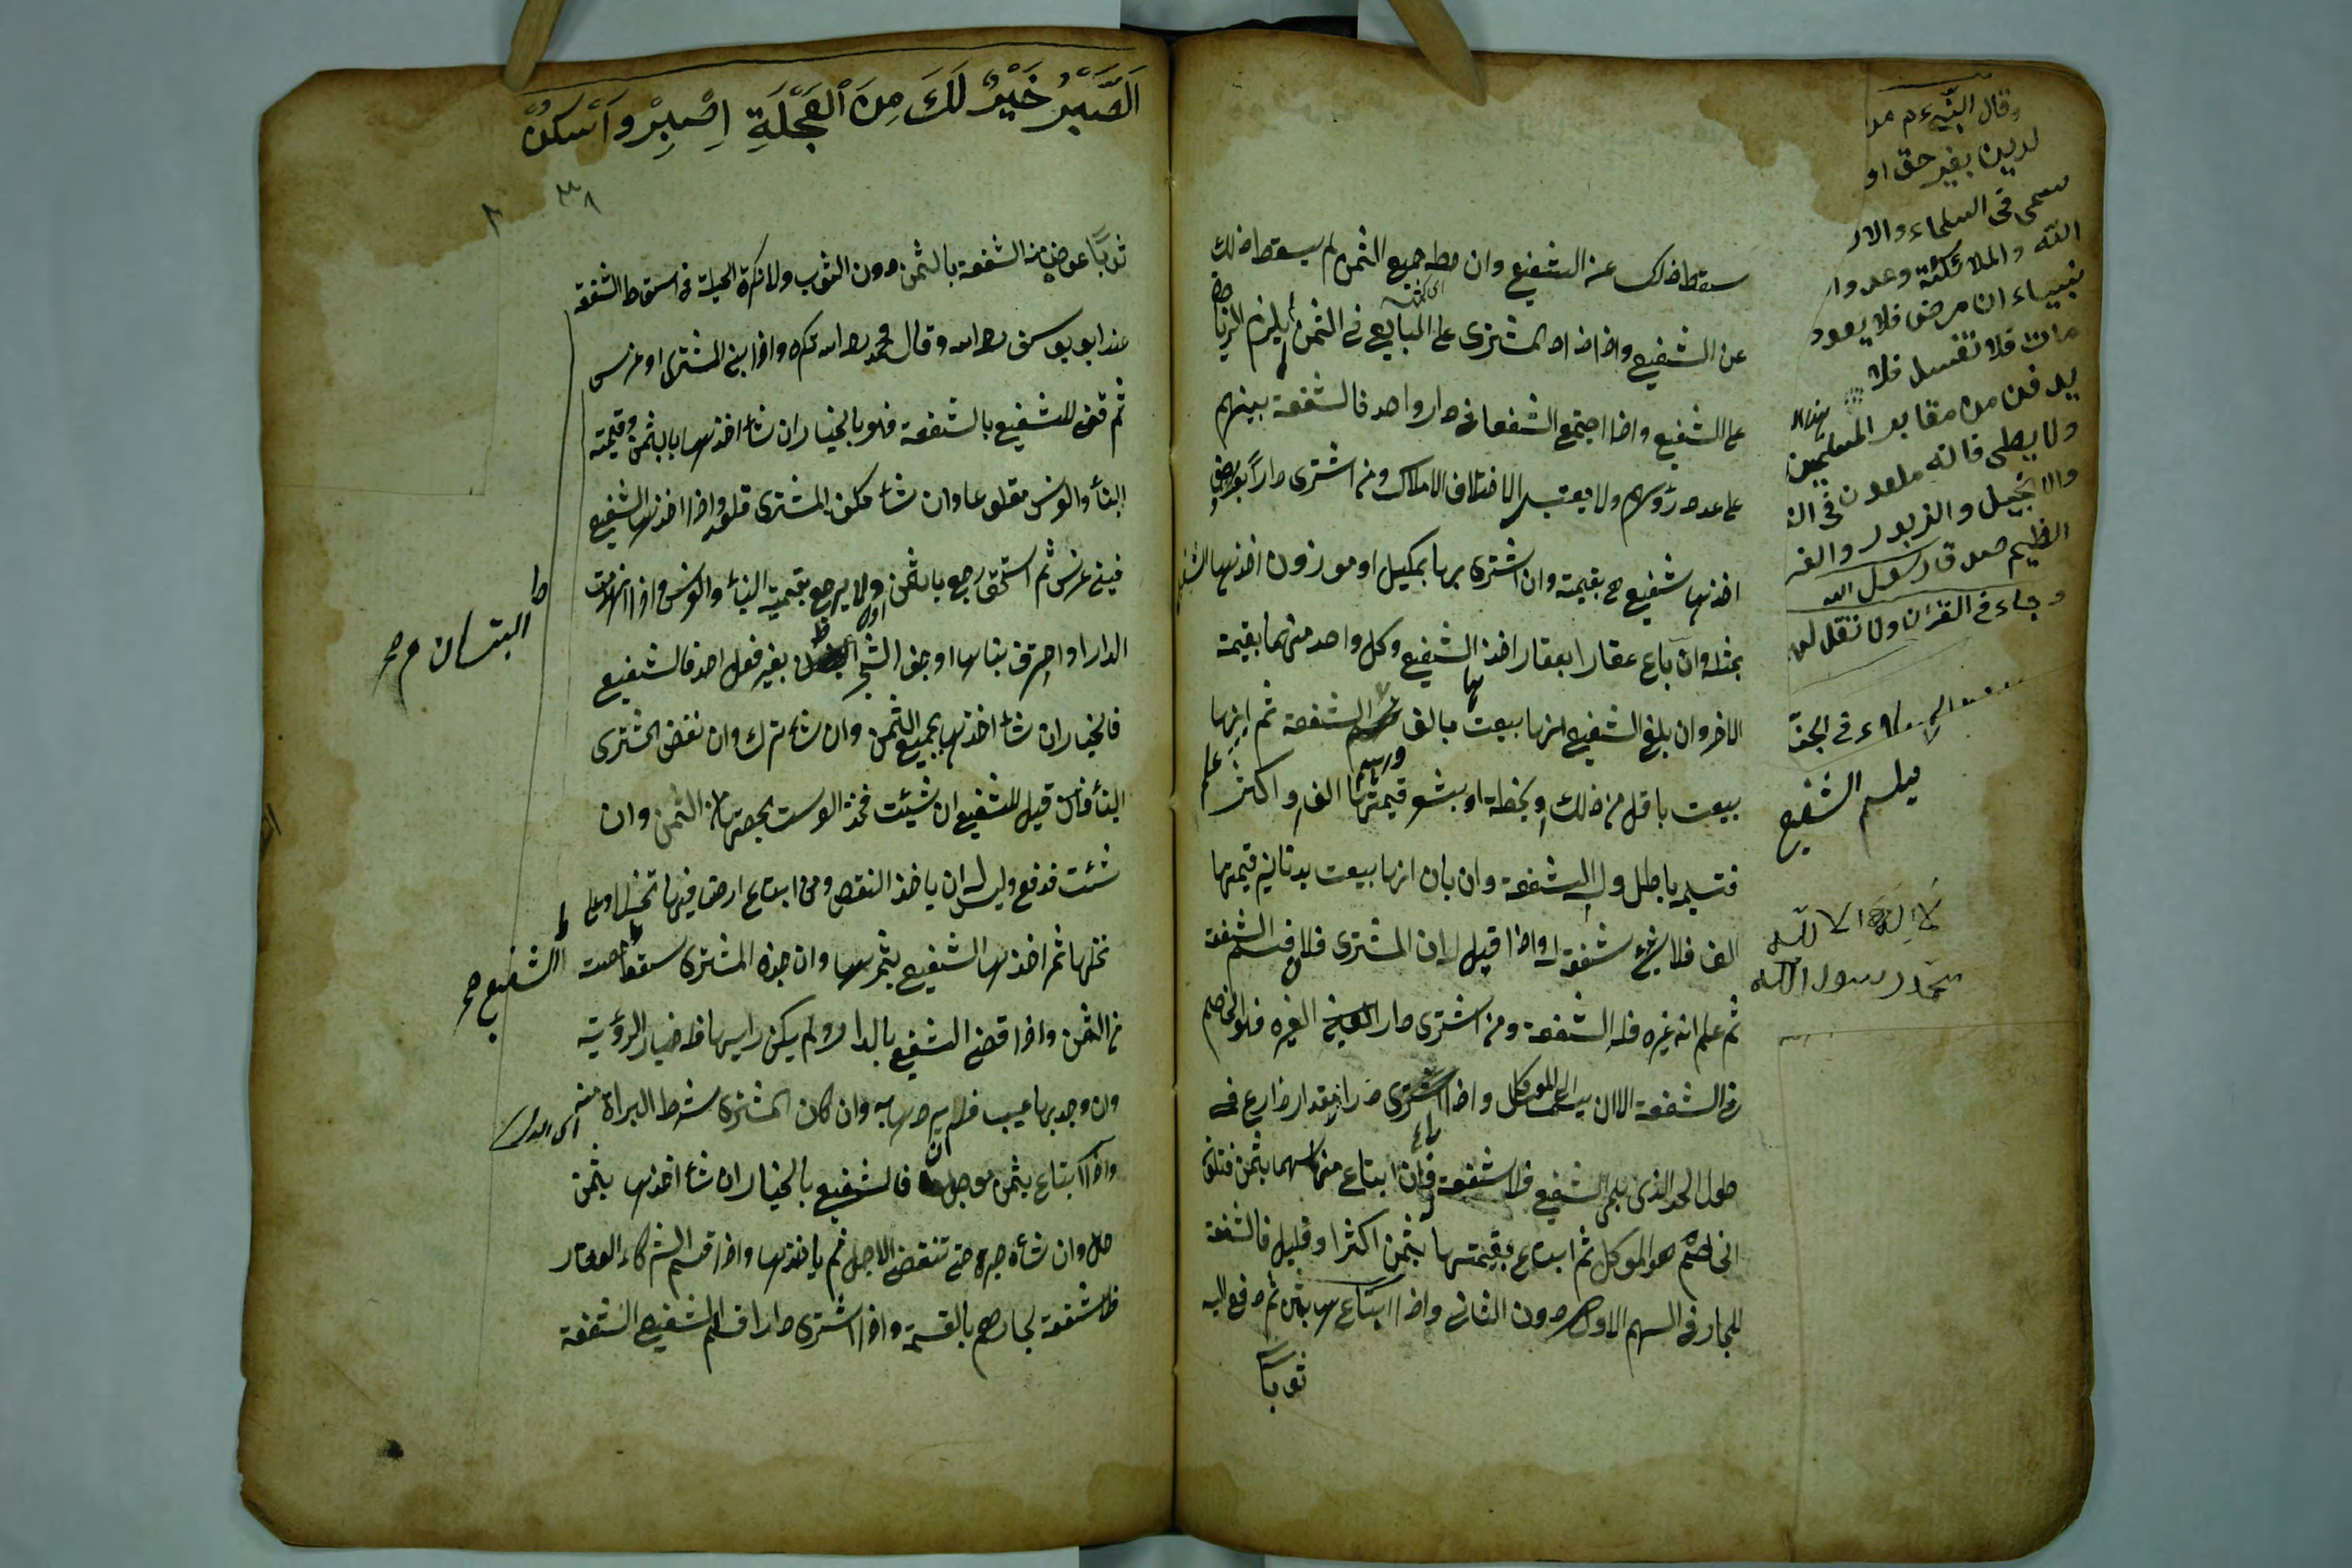 سقط ذلك عن الشفيع وان حط جميع الثمن لم يسقط ذلك
عن الشفيع واذا زاد المشترى على البايع فى الثمن لم يلزم الزيادة
على الشفيع واذا اجتمع الشفعا فى دار واحد فالشفعة بينهم
على عدد رؤسهم ولا يعتبر الاختلاف الاملاك ومن اشترى دارا بعوض
اخذها شفيع بقيمته وان اشترى بها بمكيل او موزون اخذها الشفيع
بمثله وان باع عقارا بعقار اخذ الشفيع وكل واحد منهما بقيمة
الاخر وان بلغ الشفيع انها بيعت بالف الشفعة ثم انها
بيعت باقل من ذلك او بحنطة او بشعير قيمتها الف او اكثر
فتسليمه باطل وله الشفعة وان بان انها بيعت بدنانير قيمتها
الف فلا شفعة له واذا قيل له ان المشترى فلان فسلم الشفعة
ثم علم انه غيره فله الشفعة ومن اشترى دار لغيره فهو الخاصم
فى الشفعة الا ان يسلمها الى الموكل واذا دارا الا مقدار ذارع فى
طول الحد الذى يلى الشفيع فلا شفعة وان ابتاع منها سهما بثمن
ثم ابتاع بقيمتها بثمن اكثر او قليل فالشفعة
للجار فى السهم الاول دون الثانى واذا ابتاعها بثمن ثم دفع اليه
ثوبا
وقال النبى
لدين بغير حق او
سمى فى السماء والار
الله والملائكة وعدوا
نبياء ان مرض فلا يعود
مات فلا تغسل فلا
يدفن من مقابر المسلمين
ولا يصلى فانه ملعون فى الت
والانجيل والزبور والفر
العظيم صدق رسول الله
وجاء فى القرآن ولا تقل لهما
فيسلم الشفيع
لا اله الا الله
محمد رسول الله
اَلصَّبْرُ خَيْرٌ لَكَ مِنَ الْعَجْلَةِ اِصْبِرْ وَاَسْكُنْ
٣٨
ثوبًا عوض من الشفعة بالثمن دون الثوب ولا تكره الحيلة فى اسقاط الشفعة
عند ابو يوسف رح الله وقال محمد رح الله تكره واذا بنى المشترى او غرس
ثم قضى للشفيع بالشفعة فهو بالخيار ان شأ اخذها بالثمن وقيمته
البنأ والغرس مقلوعا وان شأ مكلف المشترى قلعه واذا اخذها الشفيع
فبنى غرس ثم استحق رجع بالثمن ولا يرجع بقيمة البنأ والغرس واذا انهدمت
الدار او احترق بناها او جف الشجر بغير فعل احد فالشفيع
فالخيار ان شأ اخذها بجميع الثمن وان شأ ترك وان نقض المشترى
البنأ قيل للشفيع ان شئت فخذ العرصت بحصتها من الثمن وان
شئت فدع وليس له ان ياخذ النقص ومن ابتاع ارض فيها نخيل وعلى
نخلها ثمر اخذها الشفيع بثمرها وان جذه المشترى سقط حصت
من الثمن واذا قضى الشفيع بالدار ولم يكن راها فله خيار الرؤية
وان وجد بها عيب فله يردها به وان كان المشترى شرط البراة منه
واذا ابتاع بثمن موجل فالشفيع بالخيار ان شأ اخذها بثمن
حال وان شأ صبر حتى تنقضى الاجل ثم ياخذها واذا قسم الشركاء العقار
فلا شفعة لجارهم بالقسمة واذا اشترى دارا فسلم الشفيع الشفعة
البستان صح
الشفيع صح